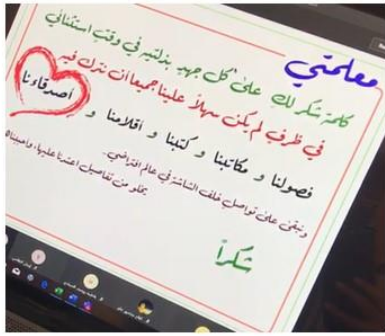 معلمتي
كلمة شكر لكِ على كل جهد بذلتيه في وقت استثنائي
في ظرف لم يكن سهلاً علينا جميعا أن نترك فيه
فصولنا و مكاتبنا و كتبنا و أقلامنا و أصدقاءنا
ونبقى على تواصل خلف الشاشة في عالم افتراضي..
يخلو من تفاصيل اعتدنا عليها، وأحببناها
شكراً